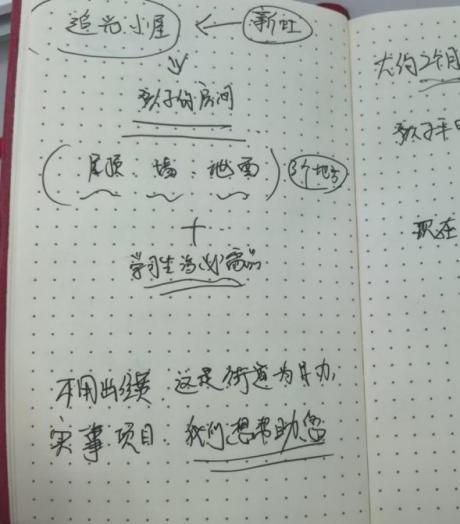 追光小屋 ← 新社
⇓
孩子的房间
(屋顶、墙、地面) 3个地方
+
学习生活必需品
不用出钱 这是街道为民办
实事项目 我们想帮助您
大约2个月
孩子平
现在